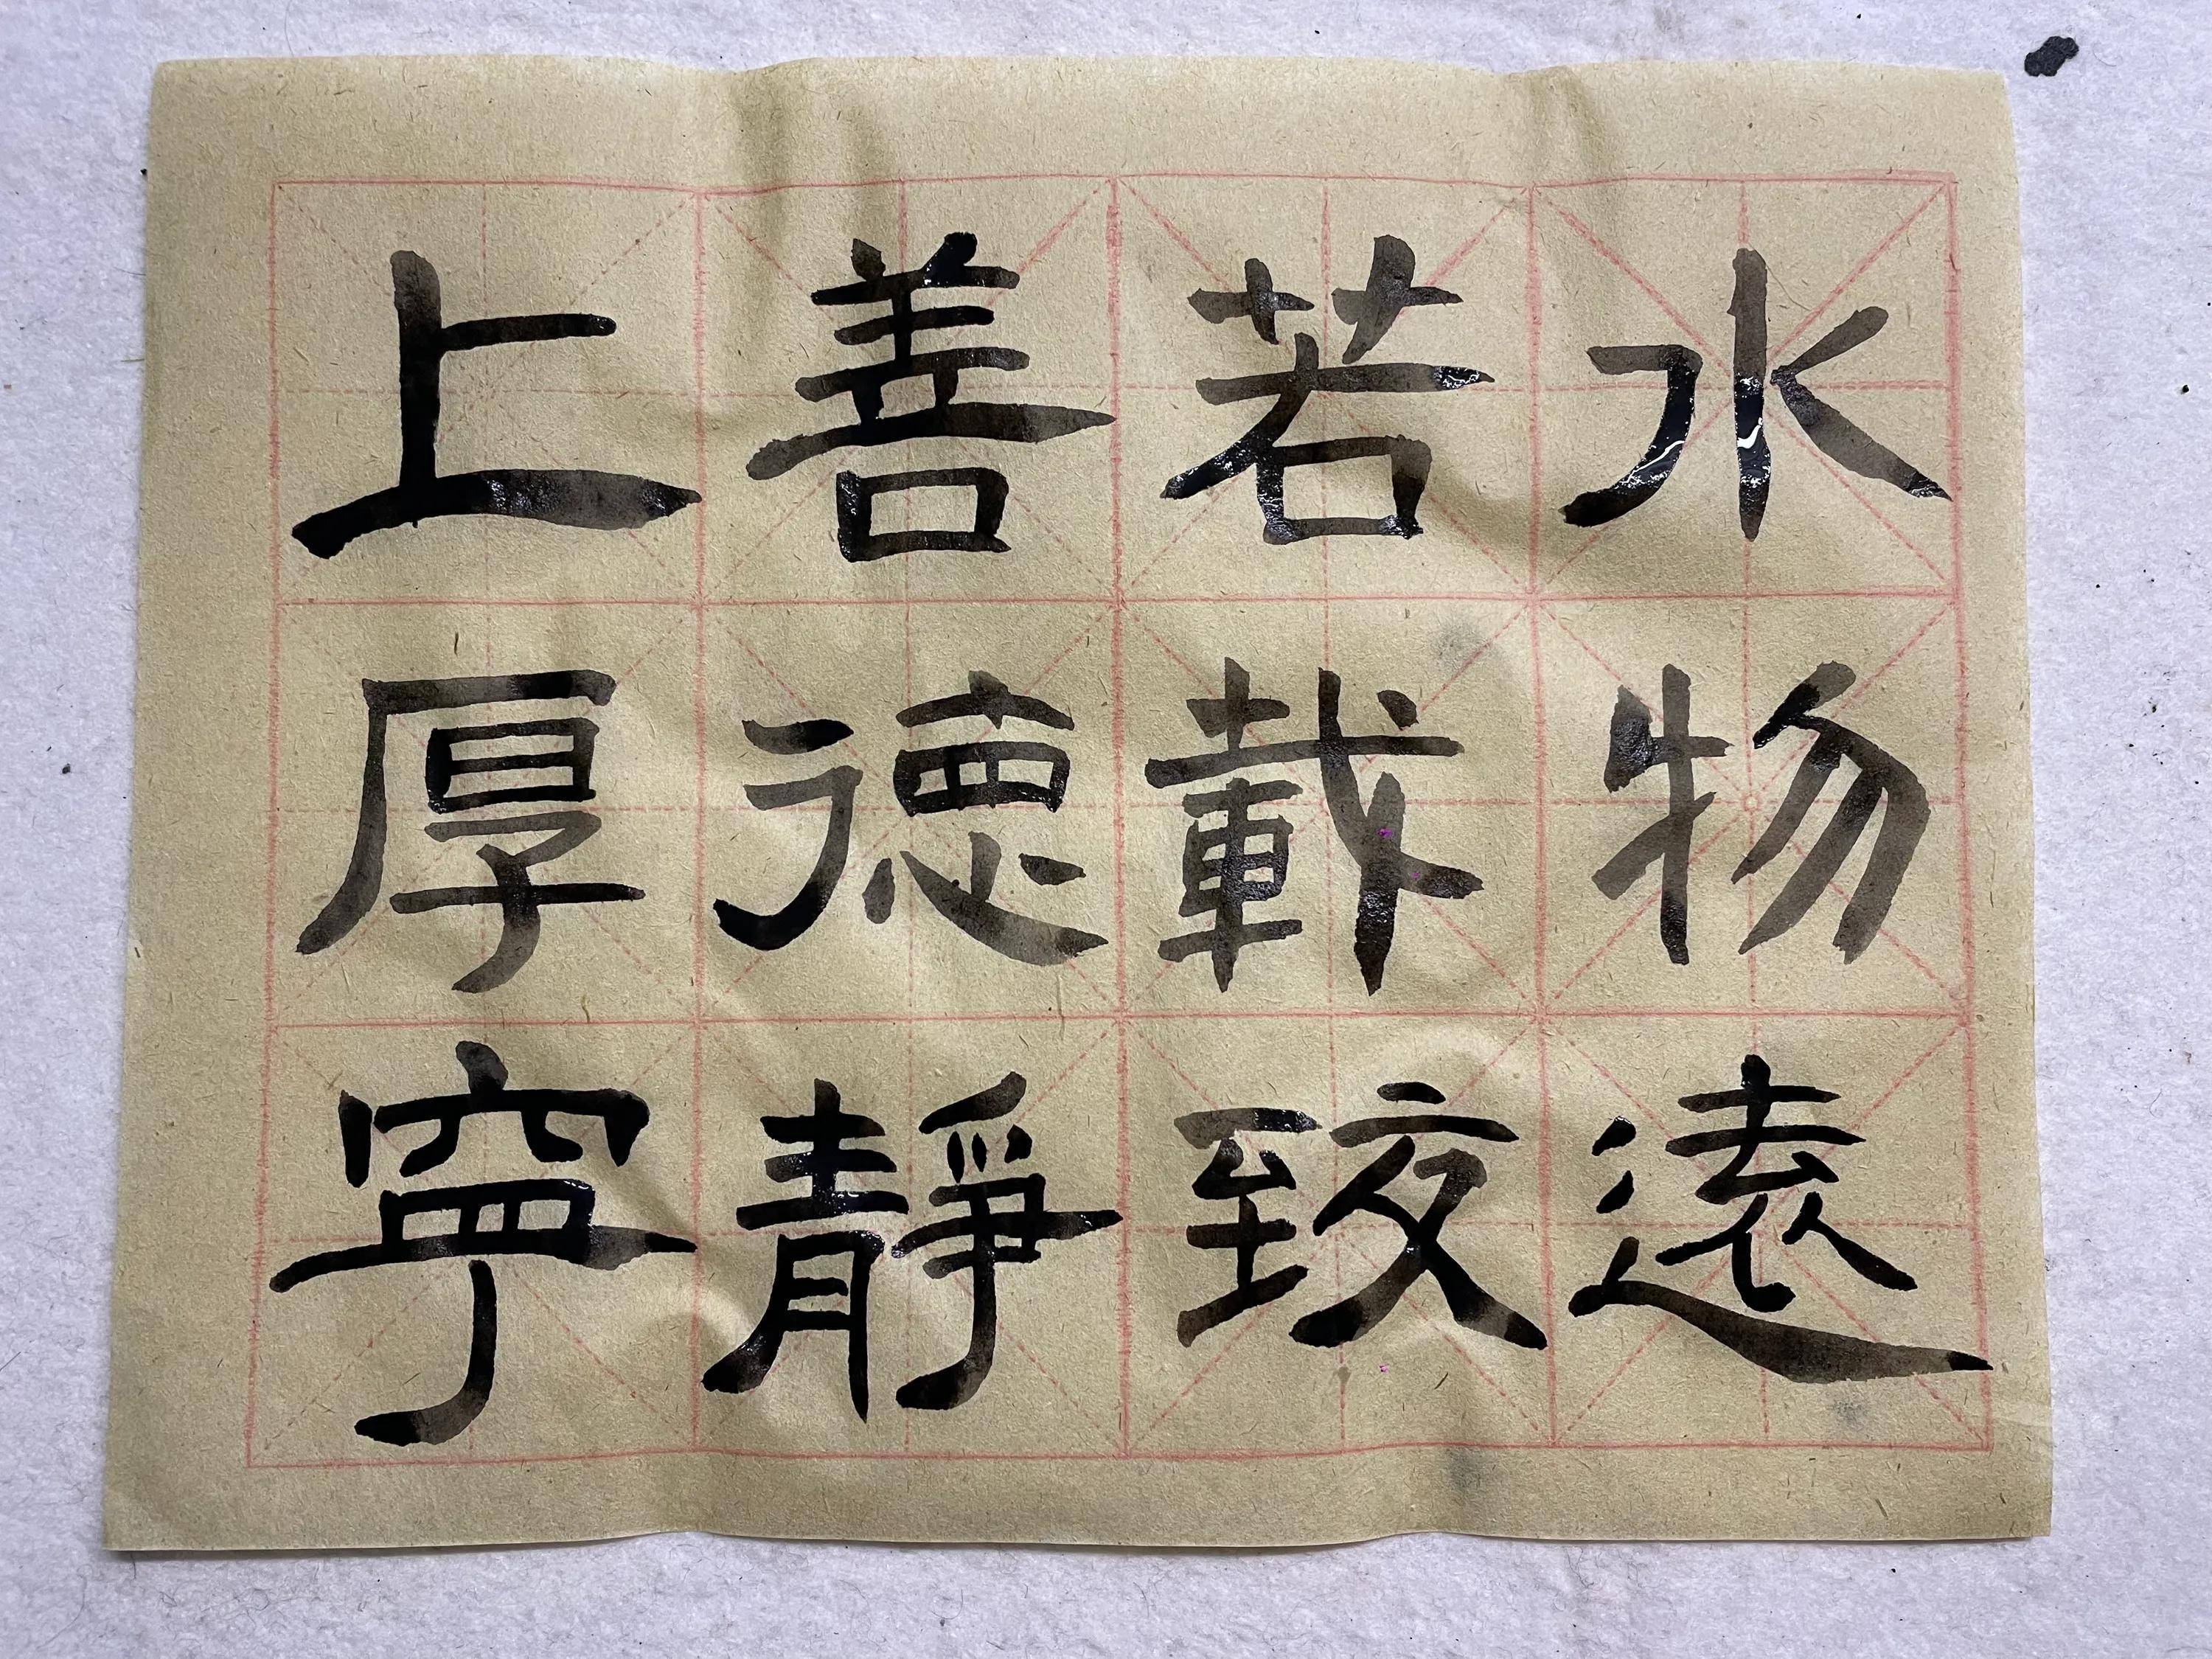 上善若水
厚德載物
寧靜致遠